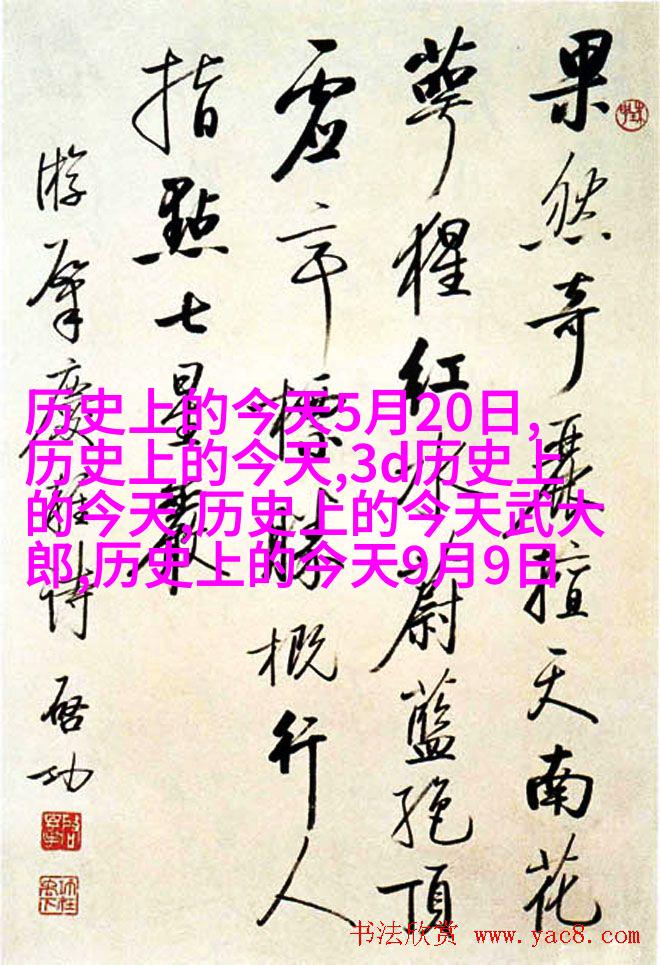 果然奇麗擅天南花
萼猩紅水蔚藍絕頂
虛亭標勝概行人
指點七星巖
游肇慶雜詩 啓功
历史上的今天5月20日,
历史上的今天,3d历史上
的今天,历史上的今天武大
郎,历史上的今天9月9日
书法欣赏 www.yac8.com